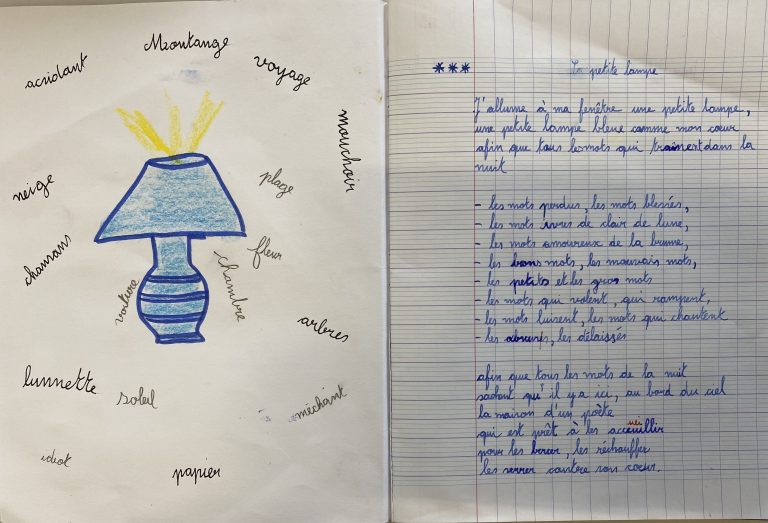 Mzontange
voyage
acsidant
mouchoir
neige
plage
fleur
chansans
chambre
voiture
arbres
lunnette
soleil
méchant
idiot
papier
***
La petite lampe
J'allume à ma fenêtre une petite lampe,
une petite lampe bleue comme mon cœur
afin que tous les mots qui trainent dans la
nuit
- les mots perdus, les mots blessés,
- les mots ivres de clair de lune,
- les mots amoureux de la brume,
- les bons mots, les mauvais mots,
- les petits et les gros mots
- les mots qui volent, qui rampent,
- les mots luisent, les mots qui chantent
- les obscurs, les délaissés
afin que tous les mots de la nuit
sachant qu'il y a ici, au bord du ciel
la maison d'un poète
qui est prêt à les accueuillir
pour les bercer, les réchauffer
les serrer contre son coeur.